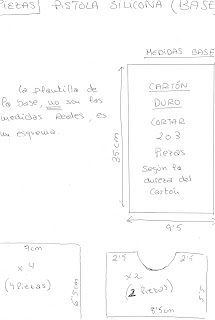 PIEZAS PISTOLA SILICONA (BASE
MEDIDAS BASE
La plantilla de
la base, no son las
medidas reales, es
un esquema.
CARTÓN
DURO
CORTAR
2 o 3
Piezas
Según la
dureza del
Cartón
35 cm
9'5
9cm
x 4
(4 Piezas)
2'5
2'5
x 2
(2 Piezas)
8'5cm